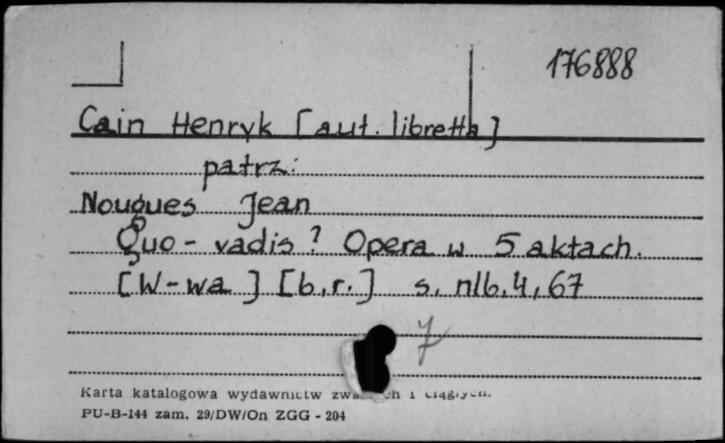 176888
Cain Henryk [aut. libretta]
patrz:
Nougues Jean
Quo-vadis? Opera w 5 aktach.
[W-wa] [b.r.] s. nlb. 4, 67
7
Karta katalogowa wydawnictw i ciągłych.
PU-B-144 zam. 29/DW/On ZGG - 204